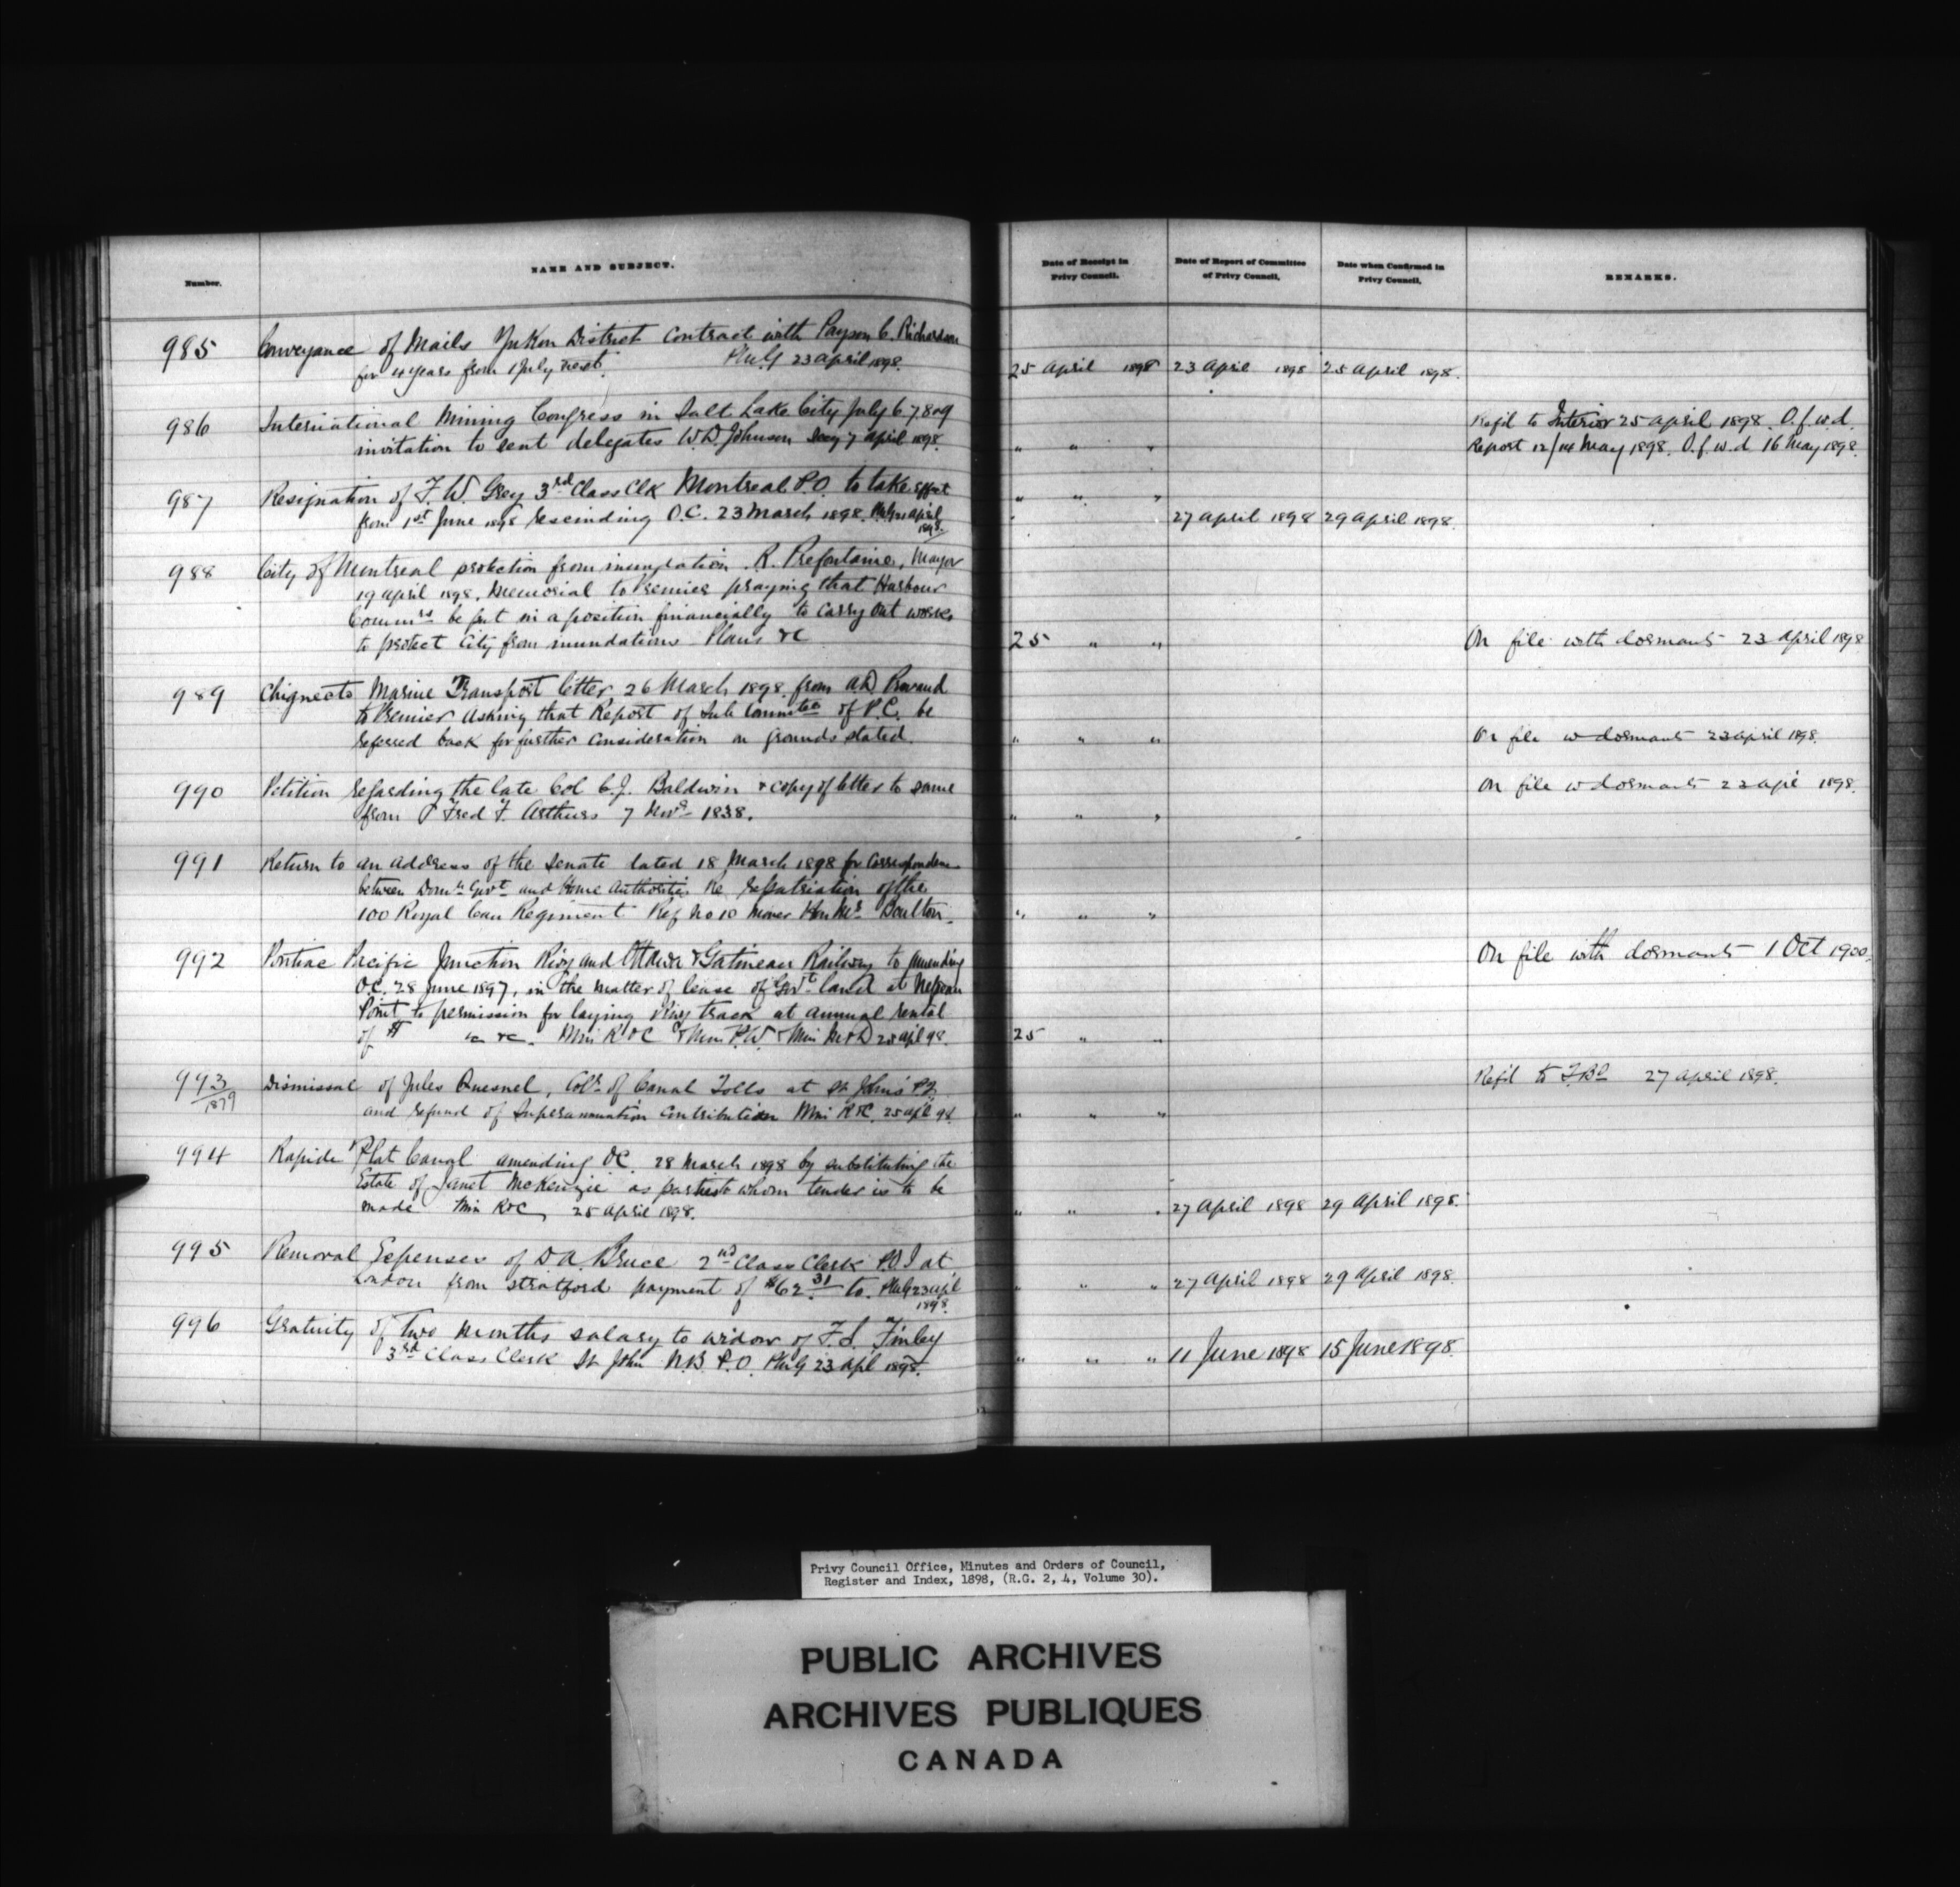 Number.
NAME AND SUBJECT.
Date of Receipt in Privy Council.
Date of Report of Committee of Privy Council.
Date when Confirmed in Privy Council.
REMARKS.
985 Conveyance of Mails Yukon District Contract with Payson C. Richardson
for 4 years from 1 July next. PMG 23 april 1898. 25 april 1898 23 april 1898 25 april 1898.
986 International Mining Congress in Salt Lake City July 6 7 8 & 9 Refd to Interior 25 april 1898. O.f.w.d.
invitation to sent delegates W.D. Johnson Secy 7 april 1898. " " " Report 12/14 May 1898. O.f.w.d 16 May 1898.
987 Resignation of F. W. Grey 3rd Class Clk Montreal P.O. to take effect " " "
from 1st June 1898 rescinding O.C. 23 March 1898. PMG 21 april 1898. 27 april 1898 29 april 1898.
988 City of Montreal protection from inundation. R. Prefontaine, Mayor
19 april 1898. Memorial to Premier praying that Harbour
Commrs be put in a position financially to carry out works
to protect City from inundations Plans &c 25 " " On file with dormants 23 april 1898
989 Chignecto Marine Transport letter 26 March 1898 from A.D. Provand
to Premier asking that Report of Sub Committee of P.C. be
referred back for further consideration on grounds stated " " " On file w dormants 23 april 1898.
990 Petition regarding the late Col C.J. Baldwin & copy of letter to same On file w dormants 23 apl 1898.
from Fred F. Arthurs 7 Novr 1838. " " "
991 Return to an address of the Senate dated 18 March 1898 for Correspondence
between Domn Govt and Home Authorities re repatriation of the
100 Royal Can Regiment Ref No 10 Mover Hon Mr Boulton. " " "
992 Pontiac Pacific Junction Rwy and Ottawa & Gatineau Railway to amending On file with dormants 1 Oct 1900.
O.C. 28 June 1897, in the matter of lease of Govt land at Nepean
Point to permission for laying Rwy track at annual rental
of $ &c &c. Min R & C & Min P.W. & Min M & D 25 apl 98. 25 " "
993/1879 Dismissal of Jules Quesnel, Colr of Canal Tolls at St John's P.Q. Refd to T. Bd 27 april 1898.
and refund of Superannuation Contribution Min R&C. 25 apl 98. " " "
994 Rapide Plat Canal amending OC. 28 March 1898 by substituting the
Estate of Janet McKenzie as parties to whom tender is to be
made Min R&C, 25 april 1898. " " " 27 april 1898 29 april 1898.
995 Removal Expenses of D A. Bruce 2nd Class Clerk P.O.I at
London from Stratford payment of $62.31 to. PMG 23 apl 1898. " " " 27 april 1898 29 april 1898.
996 Gratuity of two months salary to widow of F.S. Finley
3rd Class Clerk St John N.B P.O. PMG 23 apl 1898. " " " 11 June 1898 15 June 1898.
Privy Council Office, Minutes and Orders of Council,
Register and Index, 1898, (R.G. 2, 4, Volume 30).
PUBLIC ARCHIVES
ARCHIVES PUBLIQUES
CANADA